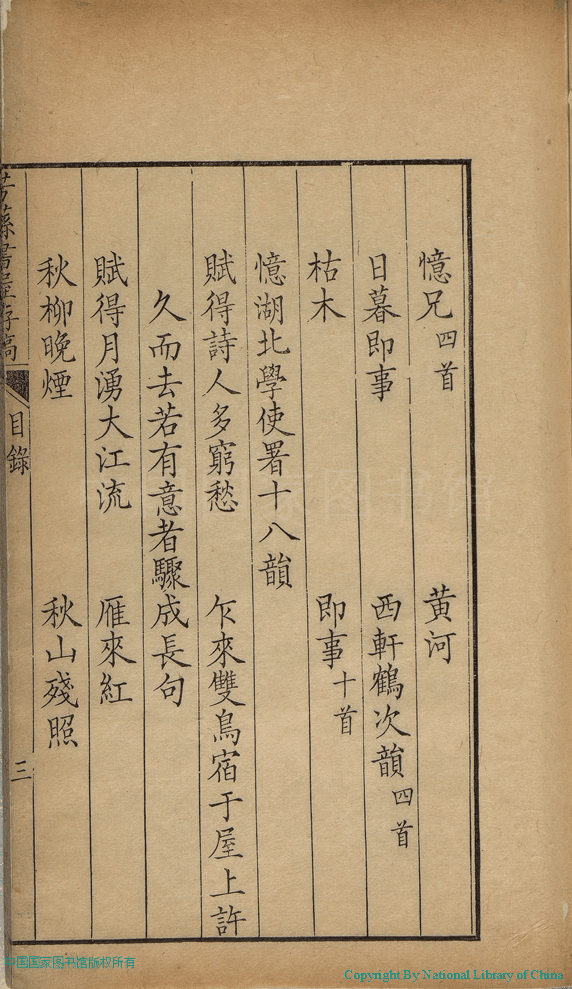 憶兄四首 黄河
日暮即事 西軒鶴次韻四首
枯木 即事十首
憶湖北學使署十八韻
賦得詩人多窮愁 乍來雙鳥宿于屋上許
久而去若有意者驟成長句
賦得月湧大江流 雁來紅
秋柳晚煙 秋山殘照
書 存稿 目錄 三
中国国家图书馆版权所有
Copyright By National Library of China